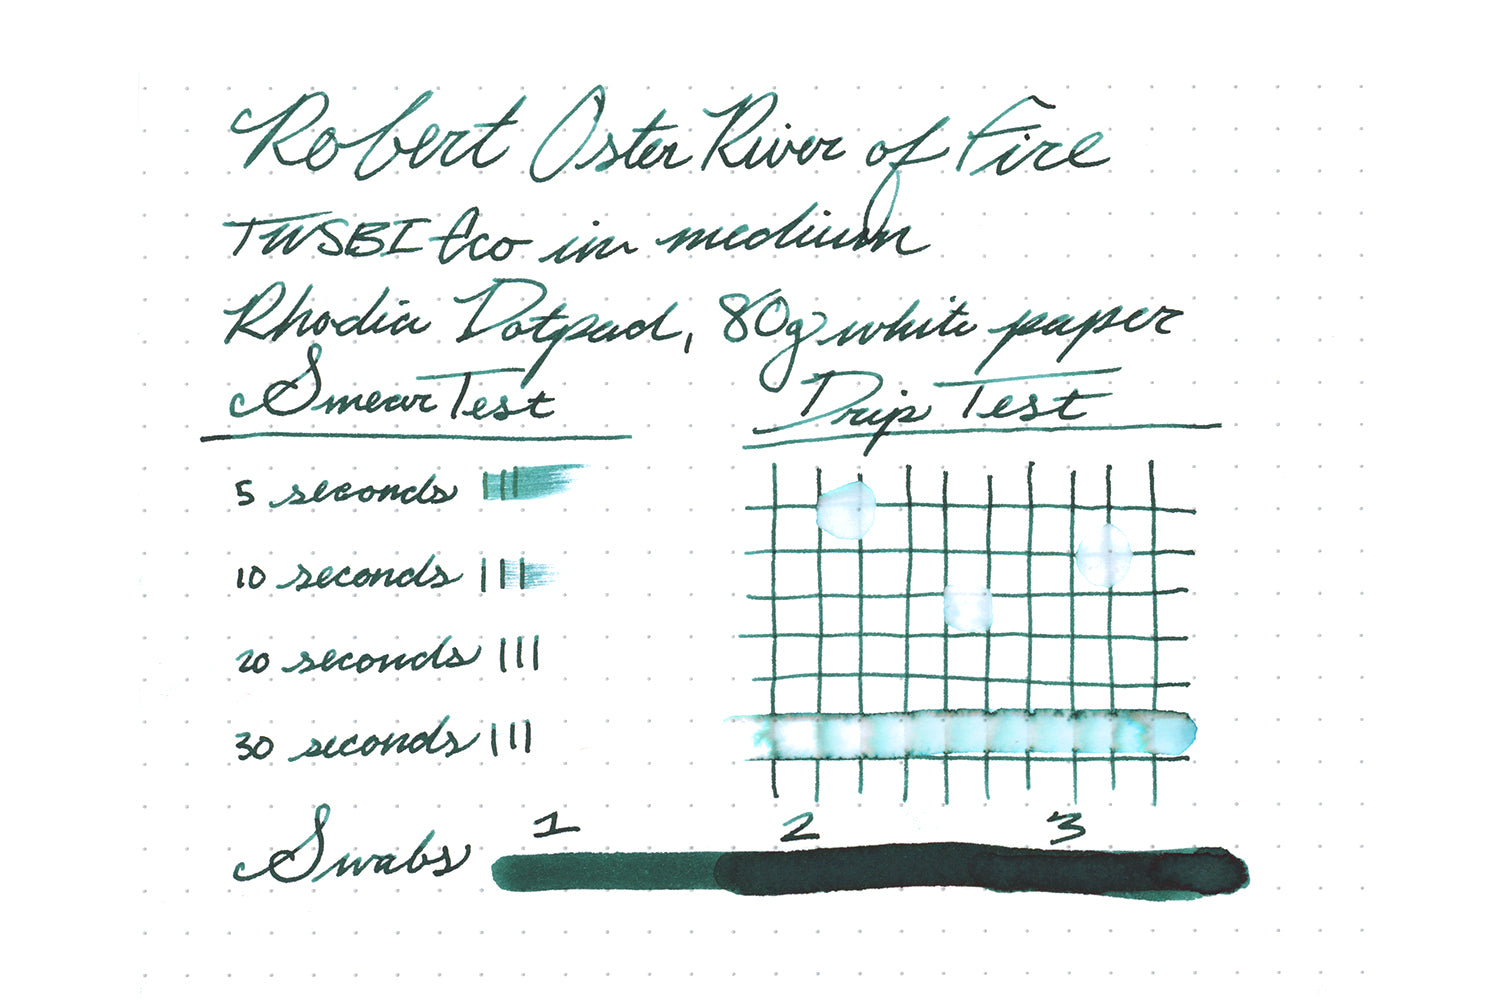 Robert Oster River of Fire
TWSBI Eco in medium
Rhodia Dotpad, 80g white paper
Smear Test
5 seconds
10 seconds
20 seconds
30 seconds
Drip Test
Swabs 1 2 3